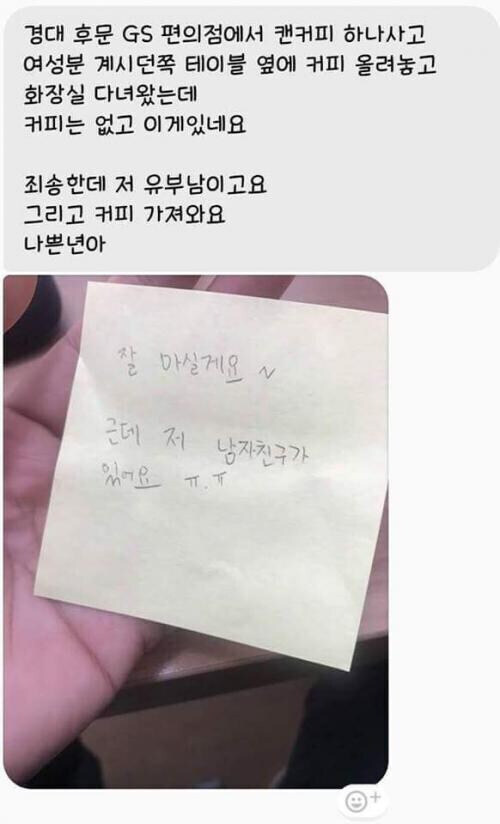 경대 후문 GS 편의점에서 캔커피 하나사고
여성분 계시던쪽 테이블 옆에 커피 올려놓고
화장실 다녀왔는데
커피는 없고 이게있네요
죄송한데 저 유부남이고요
그리고 커피 가져와요
나쁜년아
잘 마실게요 ~
근데 저 남자친구가
있어요 ㅠ.ㅠ